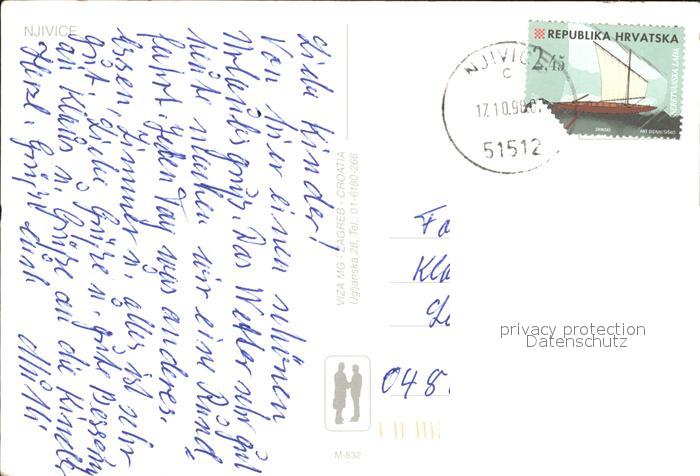 NJIVICE
Liebe Kinder!
Von hier einen schönen
Urlaubsgruß. Das Wetter sehr gut
heute machen wir eine Rund=
fahrt. Jeden Tag was anderes.
Essen, Zimmer u. alles ist sehr
gut. Liebe Grüße u. gute Besserung
an Klaus u. Grüße an die Kinder
Herzl. Grüße eure Mutti
VIZA MG - ZAGREB - CROATIA
Ugljanska 28, Tel.: 01-6160-266
M-832
REPUBLIKA HRVATSKA
2,45
NJIVICE
C
17.10.98
51512
Fa
Kla
048
privacy protection
Datenschutz